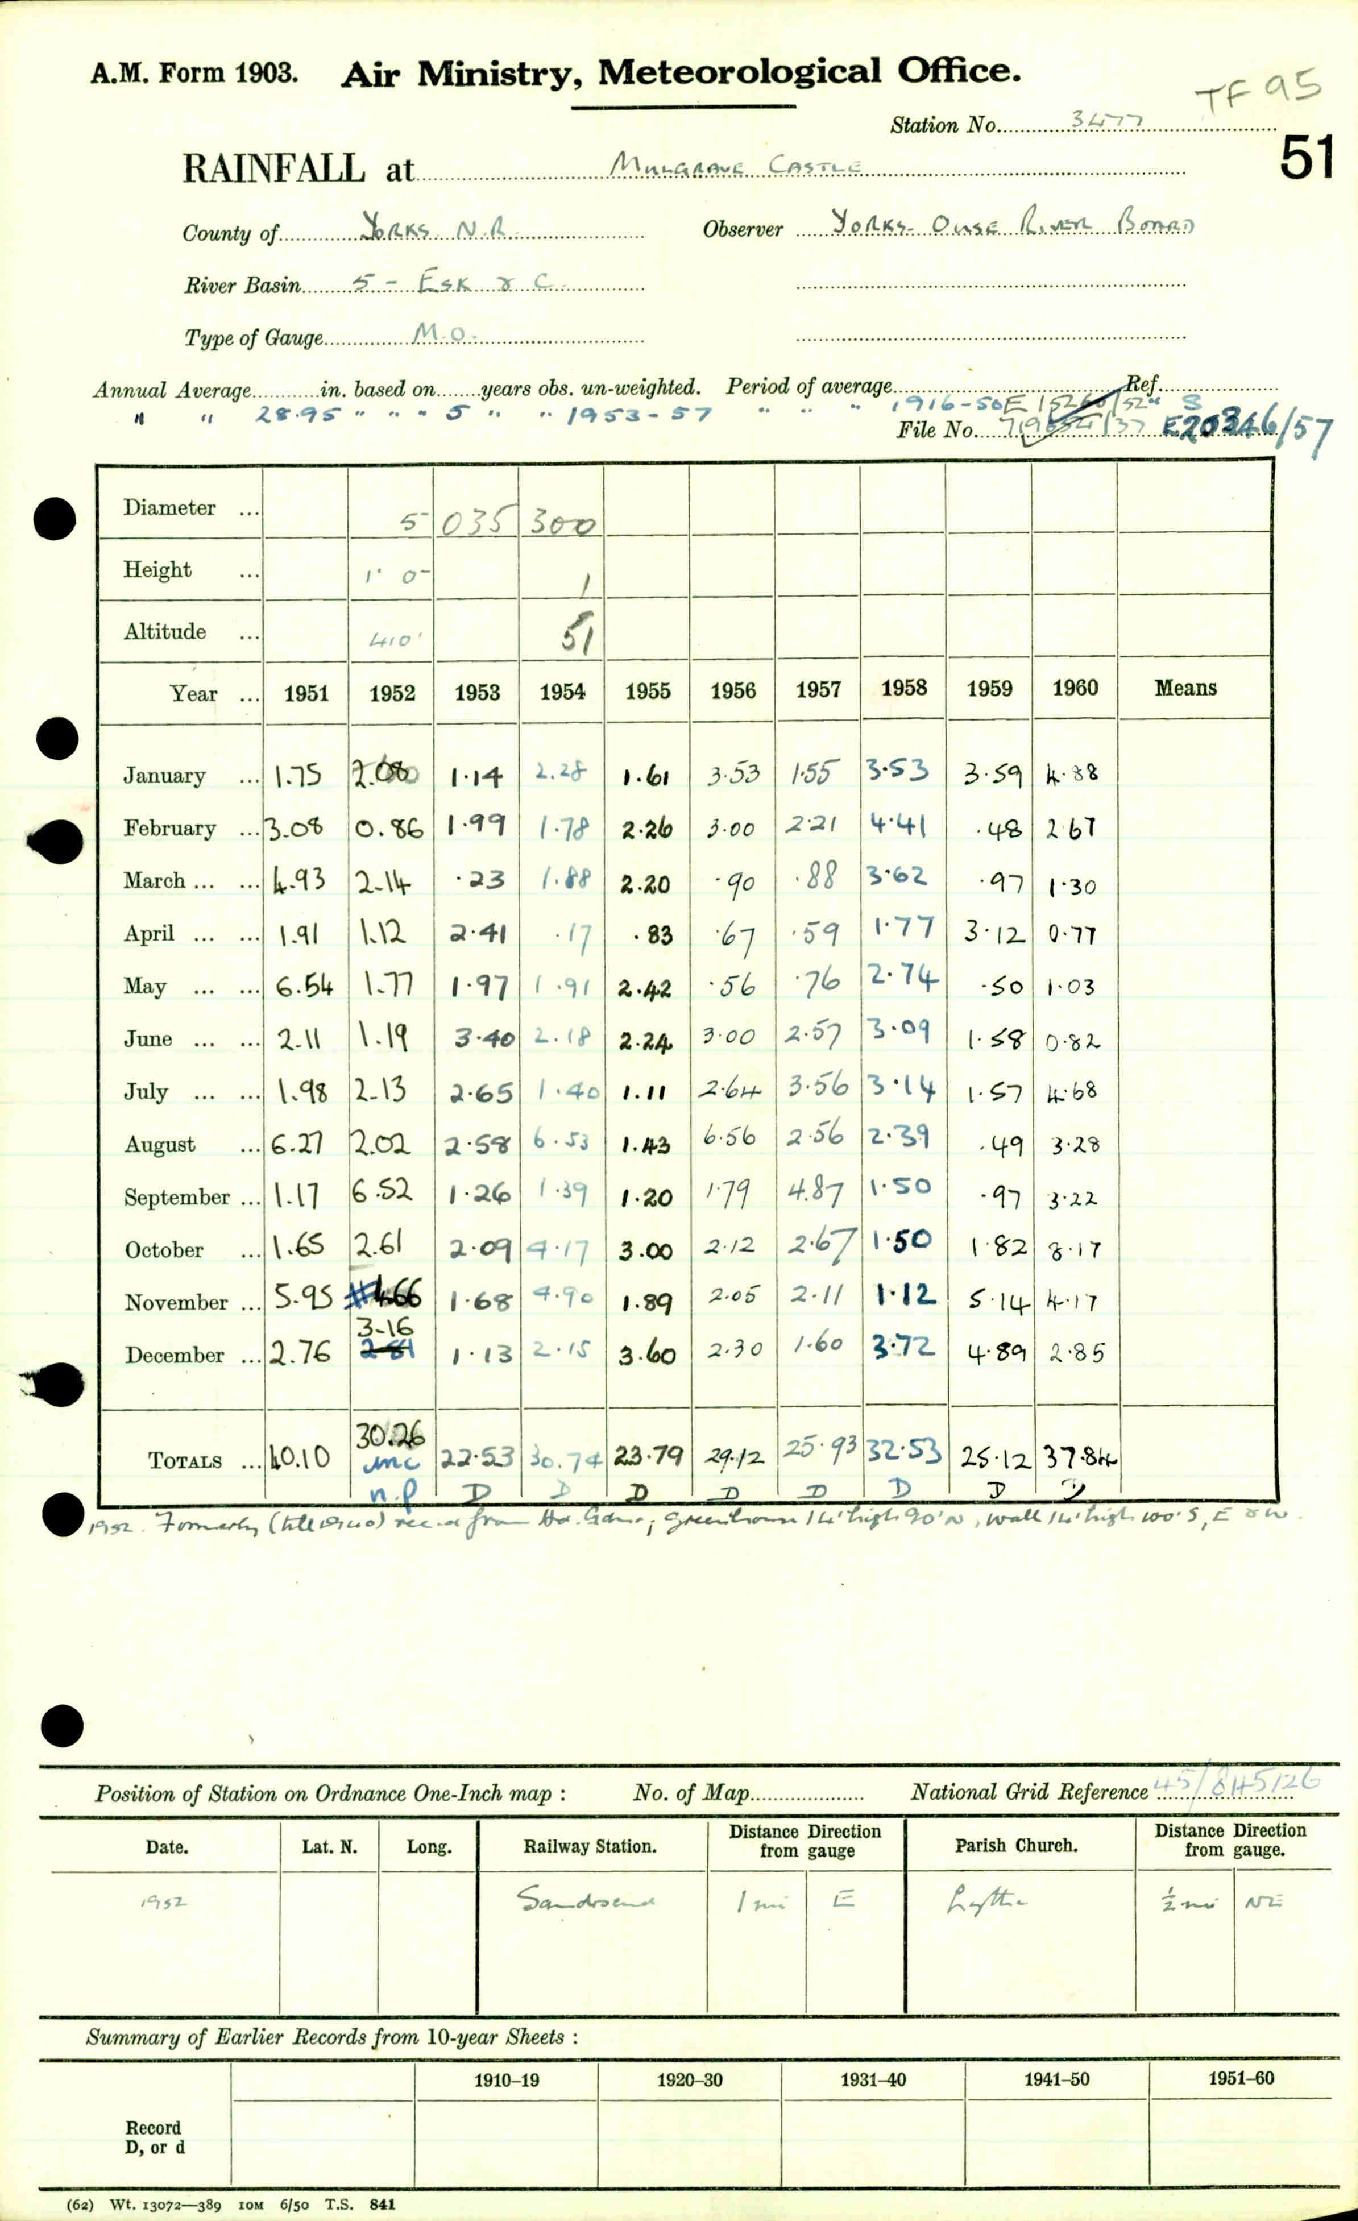 A.M. Form 1903. Air Ministry, Meteorological Office.
TF 95
Station No. 3477
51
RAINFALL at Mulgrave Castle
County of Yorks N.R. Observer Yorks Ouse River Board
River Basin 5 - Esk & C.
Type of Gauge M.O.
Annual Average in. based on years obs. un-weighted. Period of average Ref.
" " 28.95 " " " 5 " " 1953-57 " " " 1916-50
File No. E20346/57
Diameter ... 5 035 300
Height ... 1' 0" 1
Altitude ... 410' 51
Year ... 1951 1952 1953 1954 1955 1956 1957 1958 1959 1960 Means
January ... 1.75 2.08 1.14 2.28 1.61 3.53 1.55 3.53 3.59 4.88
February ... 3.08 0.86 1.99 1.78 2.26 3.00 2.21 4.41 .48 2.67
March ... ... 4.93 2.14 .23 1.88 2.20 .90 .88 3.62 .97 1.30
April ... ... 1.91 1.12 2.41 .17 .83 .67 .59 1.77 3.12 0.77
May ... ... 6.54 1.77 1.97 1.91 2.42 .56 .76 2.74 .50 1.03
June ... ... 2.11 1.19 3.40 2.18 2.24 3.00 2.57 3.09 1.58 0.82
July ... ... 1.98 2.13 2.65 1.40 1.11 2.64 3.56 3.14 1.57 4.68
August ... 6.27 2.02 2.58 6.53 1.43 6.56 2.56 2.39 .49 3.28
September ... 1.17 6.52 1.26 1.39 1.20 1.79 4.87 1.50 .97 3.22
October ... 1.65 2.61 2.09 4.17 3.00 2.12 2.67 1.50 1.82 8.17
November ... 5.95 4.66 1.68 4.90 1.89 2.05 2.11 1.12 5.14 4.17
3.16
December ... 2.76 2.81 1.13 2.15 3.60 2.30 1.60 3.72 4.89 2.85
30.26
TOTALS ... 40.10 inc 22.53 30.74 23.79 29.12 25.93 32.53 25.12 37.84
n.p D D D D D D D D
1952. Formerly (till 1940) rec.d from Hd. Gdnr; greenhouse 14' high 90' N, wall 14' high 100' S, E & W.
Position of Station on Ordnance One-Inch map : No. of Map National Grid Reference 45/845126
Date. Lat. N. Long. Railway Station. Distance Direction from gauge Parish Church. Distance Direction from gauge.
1952 Sandsend 1 mi E Lythe ½ mi NE
Summary of Earlier Records from 10-year Sheets :
1910–19 1920–30 1931–40 1941–50 1951–60
Record
D, or d
(62) Wt. 13072—389 10M 6/50 T.S. 841